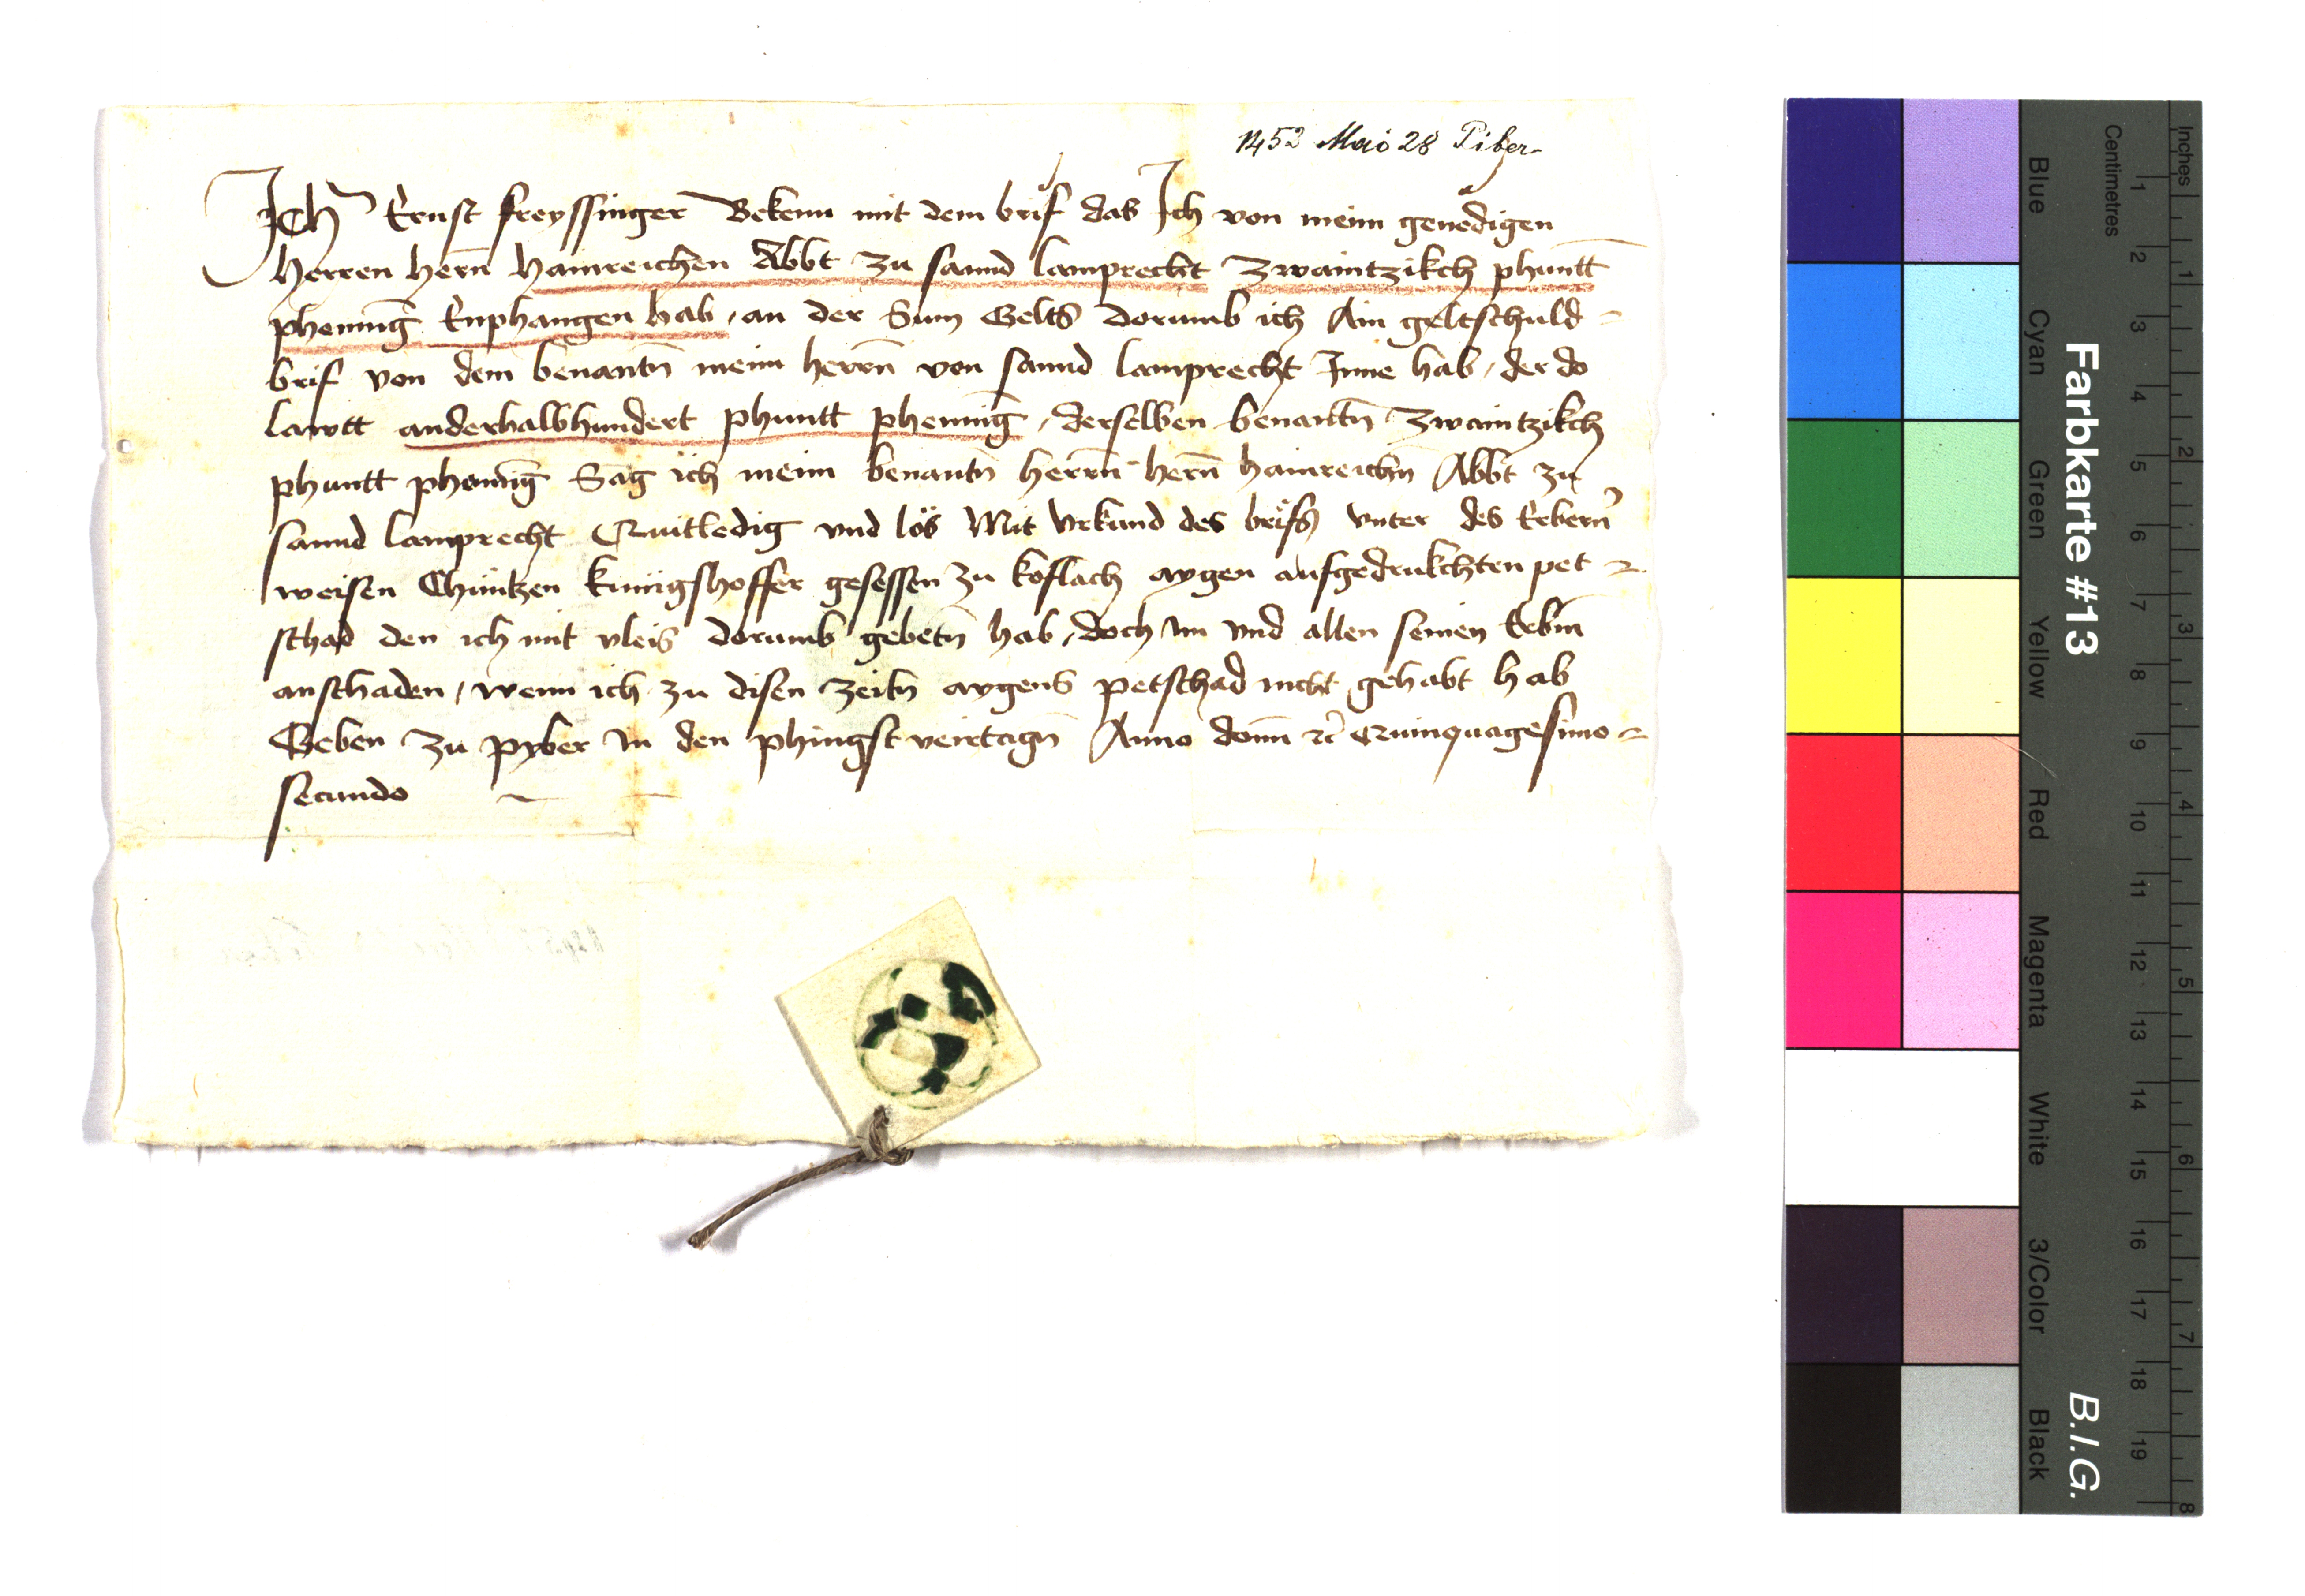 1452 Mai 28 Piber
Ich Ernst freyssinger Bekenn mit dem brif das Ich von meim genedigen
Herren hern̄ Hainreichen Abbt zu sannd lamprecht zwaintzikch phuntt
phenninḡ Enphangen hab / an der Sum Gelts dorumb ich Ain geltschuld =
brif von dem benantn̄ meim herrn̄ von sannd lamprecht Inne hab / der do
lawtt anderhalbhundert phuntt phenninḡ / derselben benantn̄ zwaintzikch
phuntt phenninḡ Sag ich meim benantn̄ herrn̄ hern̄ hainreichn̄ Abbt zu
sannd lamprecht Quittledig vnd lös Mit Vrkund des brifs vnter des Erbern̄
weisen Chuntzen kunigshoffer gesessen zu koflach aygen aufgedrukchten pet =
schad den ich mit vleis dorumb gebetn̄ hab / doch im vnd allen seinen Erbm̄
anschaden / wenn ich zu disen zeitn̄ aygens petschad nicht gehabt hab
Geben zu pyber in den phingstveirtagn̄ Anno domn̄ zc̄ Quinquagesimo =
secundo
Farbkarte #13
B.I.G.
Blue Cyan Green Yellow Red Magenta White 3/Color Black
Centimetres 1 2 3 4 5 6 7 8 9 10 11 12 13 14 15 16 17 18 19
Inches 1 2 3 4 5 6 7 8